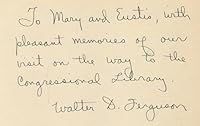 To Mary and Eustis, with
pleasant memories of our
visit on the way to the
Congressional Library.
Walter D. Ferguson